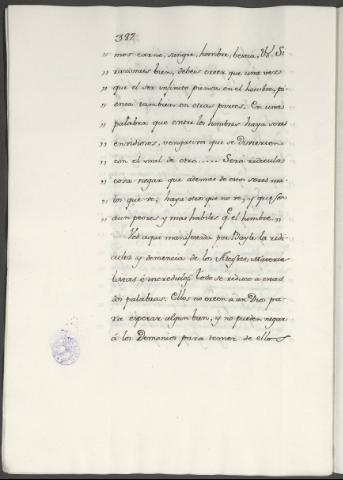 382
mos carne, sangre, hombre, bestia, &c. Si
„ razonares bien, debeis creer que una vez
„ que el ser infinito piensa en el hombre, pi-
„ ensa tambien en otras partes. En una
„ palabra que entre los hombres haya seres
„ envidiosos, vengativos que se divierten
„ con el mal de otro..... Sera ridicula
„ cosa negar que ademas de estos seres ma-
„ los que ve, haya otros que no ve, y que son
„ aun peores y mas habiles q.e el hombre. „
Ved aqui manifestada por Bayle la ridi-
culez y demencia de los Ateistas, Materia-
listas é incredulos; todo se reduce a estas
dos palabras. Ellos no creen a un Dios pa-
ra esperar algun bien, y no pueden negar
á los Demonios para temer de ellos